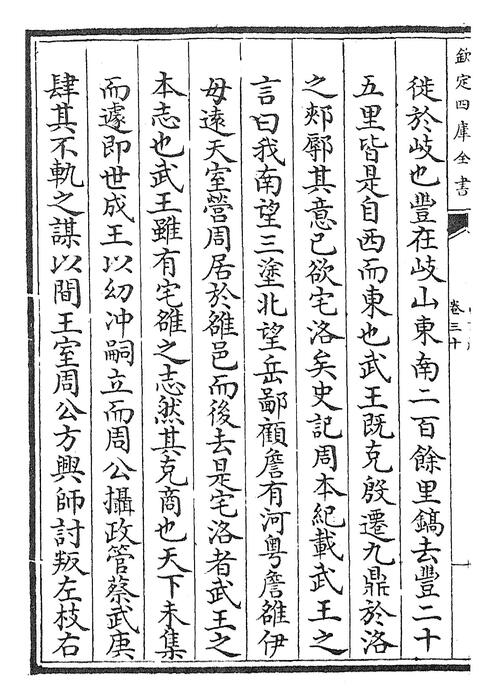 欽定四庫全書
卷三十
徙於岐也豐在岐山東南二百餘里鎬去豐二十
五里皆是自西而東也武王既克殷遷九鼎於洛
之郟鄏其意已欲宅洛矣史記周本紀載武王之
言曰我南望三塗北望岳鄙顧詹有河粤詹雒伊
毋遠天室營周居於雒邑而後去是宅洛者武王之
本志也武王雖有宅雒之志然其克商也天下未集
而遽即世成王以幼冲嗣立而周公攝政管蔡武庚
肆其不軌之謀以間王室周公方興師討叛左枝右